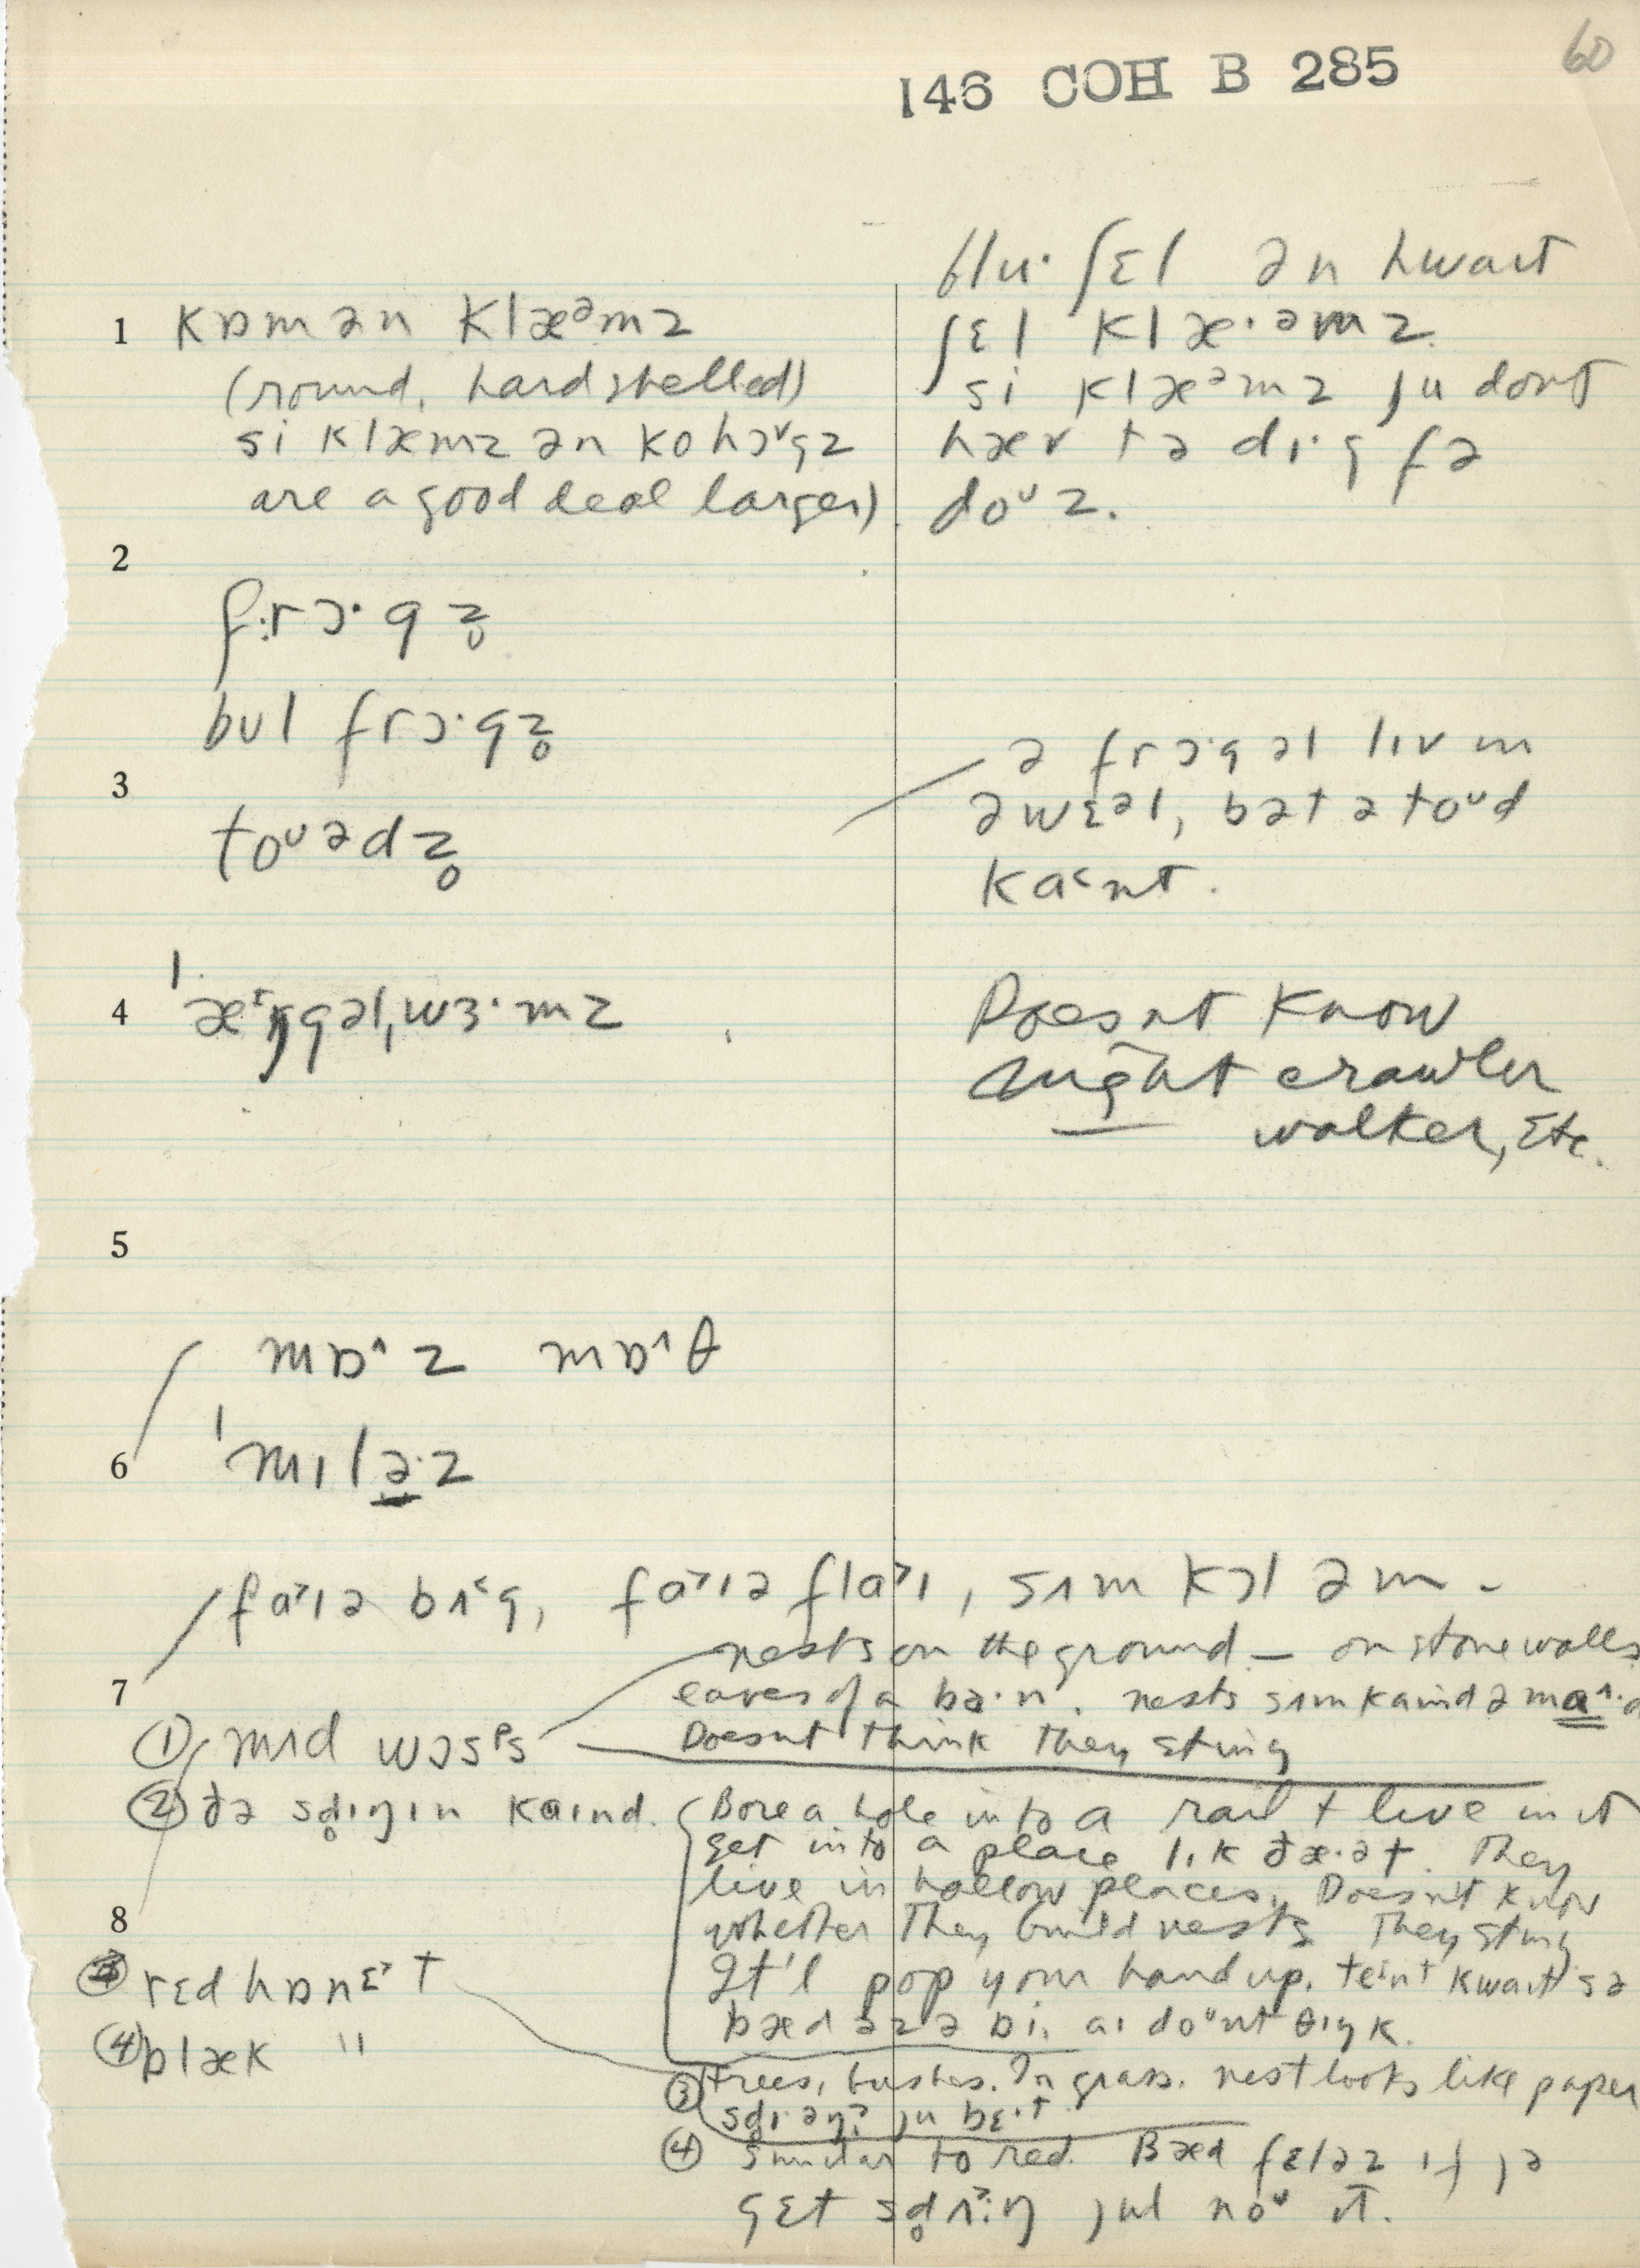 60
146 COH B 285
1 kɒmən klæᵊmz
(round, hardshelled)
si klæmz ən kohɔᵛgz
are a good deal larger)
blu· ʃɛl ən hwaɪt
ʃɛl klæ·əmz.
si klæᵊmz ju dont
hæv tə dɪ·g fə
doᶷz.
2
f:rɔ·gz̥
bʊl frɔ·gz̥
3
toᶷədz̥
ə frɔ·g əl lɪv ɪn
ə wɛᵊl, bət ə toᶷd
ka˂nt.
4 ˈæ˔ŋgəlˌwɜ·mz
Doesn't know
night crawler
walker, Etc.
5
mɒ^z mɒ^θ
6
ˈmɪlə·z
fa˃ɪə bʌ˂g, fa˃ɪə fla˃ɪ, sʌm kɔl əm –
7
nests on the ground – on stone walls
eaves of a ba·n. nests sʌm kaɪnd ə ma^·d
① mʌd wɔsᵖs
Doesn't think they sting
② ðə sd̥ɪŋɪn kaɪnd.
Bore a hole into a rail + live in it
get into a place lɪk ðæ·ət. They
live in hollow places, Doesn't know
8
whether they build nests They sting
③ rɛd hɒnɛ˃t
It'l pop your hand up. teɪnt kwaɪt sə
bæd əz ə bi, aɪ doᶷnt θɪŋk.
④ blæk "
③ trees, bushes. In grass. nest looks like paper
sd̥ɪəŋ? ju bɛ·t
④ Similar to red. Bæd fɛləz ɪf jə
gɛt sd̥ʌ˃:ŋ jul noᶷ ɪt.